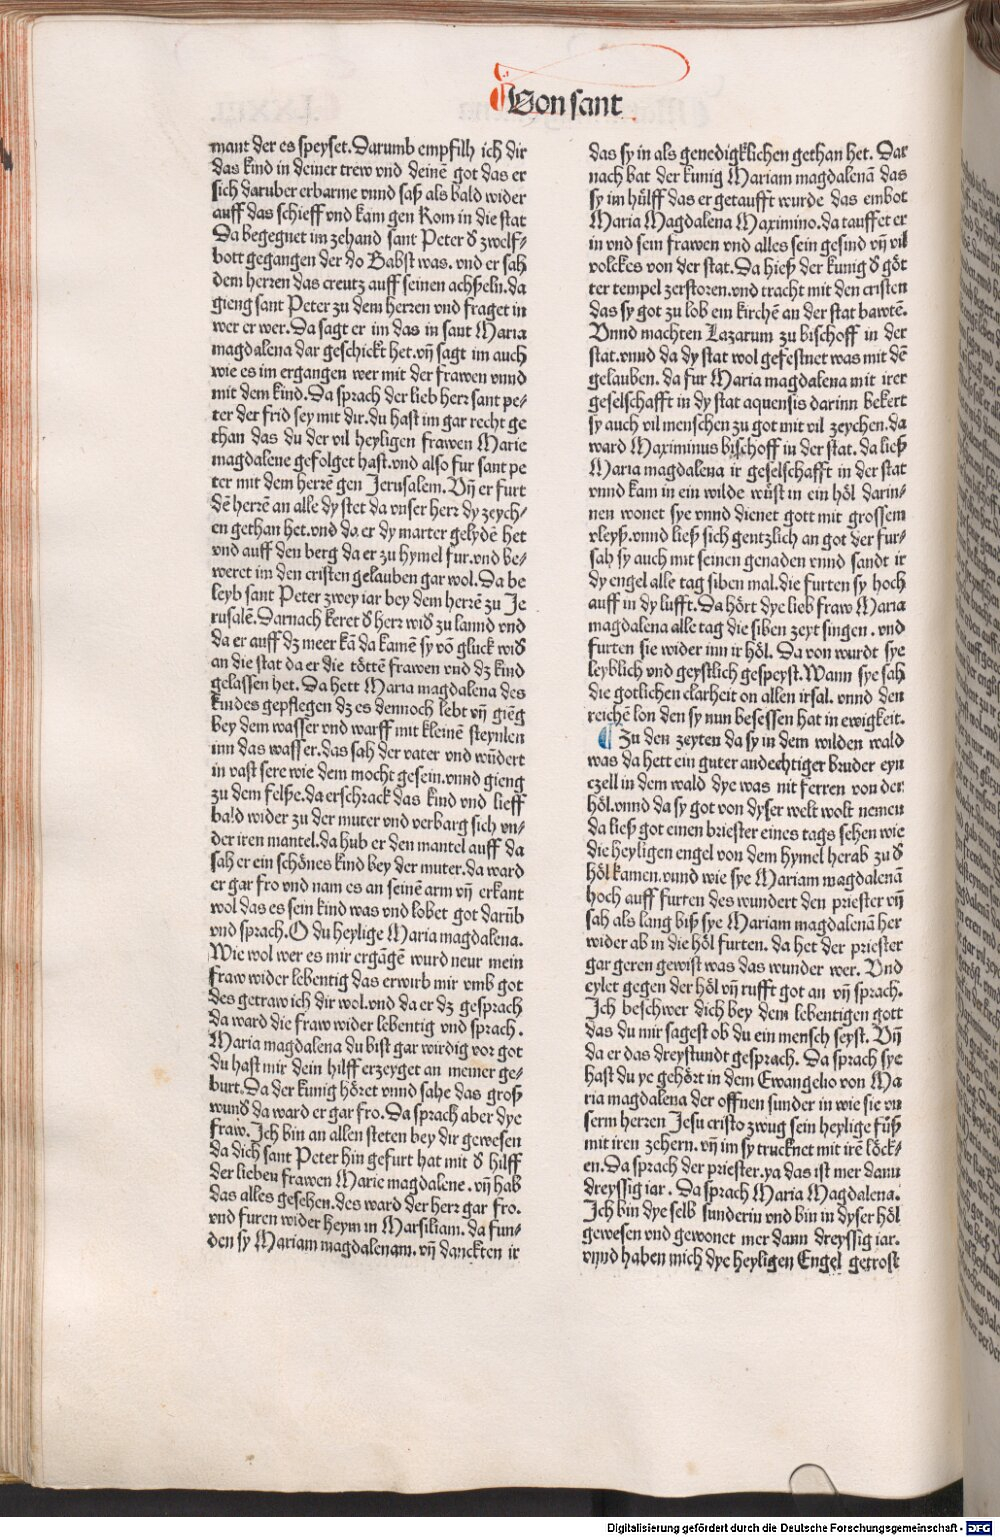 Von sant
mant der es speyset. Darumb empfilh ich dir
das kind in deiner trew vnd deinē got das er
sich daruber erbarme vnnd saß als bald wider
auff das schieff vnd kam gen Rom in die stat
Da begegnet im zehand sant Peter d̄ zwelf⸗
bott gegangen der do Babst was. vnd er sah
dem herren das creutz auff seinen achßeln. da
gieng sant Peter zu dem herren vnd fraget in
wer er wer. Da sagt er im das in sant Maria
magdalena dar geschickt het. vn̄ sagt im auch
wie es im ergangen wer mit der frawen vnnd
mit dem kind. Da sprach der lieb herr sant pe⸗
ter der frid sey mit dir. du hast im gar recht ge
than das du der vil heyligen frawen Marie
magdalene gefolget hast. vnd also fur sant pe
ter mit dem herrē gen Jerusalem. Vn̄ er furt
dē herrē an alle dy stet da vnser herr dy zeych⸗
en gethan het. vnd da er dy marter gelydē het
vnd auff den berg da er zu hymel fur. vnd be⸗
weret im den cristen gelauben gar wol. Da be
leyb sant Peter zwey iar bey dem herrē zu Je
rusalē. Darnach keret d̄ herr wid̄ zu lannd vnd
da er auff dz meer kā da kamē sy vō gluck wid̄
an die stat da er die töttē frawen vnd dz kind
gelassen het. Da hett Maria magdalena des
kindes gepflegen dz es dennoch lebt vn̄ giēg
bey dem wasser vnd warff mit kleinē steynlen
inn das wasser. das sah der vater vnd wūdert
in vast sere wie dem mocht gesein. vnnd gieng
zu dem felße. da erschrack das kind vnd lieff
bald wider zu der muter vnd verbarg sich vn⸗
der iren mantel. da hub er den mantel auff da
sah er ein schönes kind bey der muter. da ward
er gar fro vnd nam es an seinē arm vn̄ erkant
wol das es sein kind was vnd lobet got darūb
vnd sprach. O du heylige Maria magdalena.
Wie wol wer es mir ergāgē wurd neur mein
fraw wider lebentig das erwirb mir vmb got
des getraw ich dir wol. vnd da er dz gesprach
da ward die fraw wider lebentig vnd sprach.
Maria magdalena du bist gar wirdig vor got
du hast mir dein hilff erzeyget an meiner ge⸗
burt. Da der kunig höret vnnd sahe das groß
wund̄ da ward er gar fro. Da sprach aber dye
fraw. Ich bin an allen steten bey dir gewesen
da dich sant Peter hin gefurt hat mit d̄ hilff
der lieben frawen Marie magdalene. vn̄ hab
das alles gesehen. des ward der herr gar fro.
vnd furen wider heym in Marsiliam. da fun⸗
den sy Mariam magdalenam. vn̄ danckten ir
das sy in als genedigklichen gethan het. Dar
nach bat der kunig Mariam magdalenā das
sy im hülff das er getaufft wurde das embot
Maria Magdalena Maximino. da tauffet er
in vnd sein frawen vnd alles sein gesind vn̄ vil
volckes von der stat. Da hieß der kunig d̄ göt
ter tempel zerstoren. vnd tracht mit den cristen
das sy got zu lob ein kirchē an der stat bawtē.
Vnnd machten Lazarum zu bischoff in der
stat. vnnd da dy stat wol gefestnet was mit dē
gelauben. da fur Maria magdalena mit irer
geselschafft in dy stat aquensis darinn bekert
sy auch vil menschen zu got mit vil zeychen. da
ward Maximinus bischoff in der stat. da ließ
Maria magdalena ir geselschafft in der stat
vnnd kam in ein wilde wüst in ein höl darin⸗
nen wonet sye vnnd dienet gott mit grossem
vleyß. vnnd ließ sich gentzlich an got der fur⸗
sah sy auch mit seinen genaden vnnd sandt ir
dy engel alle tag siben mal. die furten sy hoch
auff in dy lufft. Da hört dye lieb fraw Maria
magdalena alle tag die siben zeyt singen. vnd
furten sie wider inn ir höl. Da von wurdt sye
leyblich vnd geystlich gespeyst. Wann sye sah
die gotlichen clarheit on allen irsal. vnnd den
reichē lon den sy nun besessen hat in ewigkeit.
Zu den zeyten da sy in dem wilden wald
was da hett ein guter andechtiger bruder eyn
czell in dem wald dye was nit ferren von der
höl. vnnd da sy got von dyser welt wolt nemen
da ließ got einen briester eines tags sehen wie
die heyligen engel von dem hymel herab zu d̄
höl kamen. vnnd wie sye Mariam magdalenā
hoch auff furten des wundert den priester vn̄
sah als lang biß sye Mariam magdalenā her
wider ab in die höl furten. da het der priester
gar geren gewist was das wunder wer. Vnd
eylet gegen der höl vn̄ rufft got an vn̄ sprach.
Ich beschwer dich bey dem lebentigen gott
das du mir sagest ob du ein mensch seyst. Vn̄
da er das dreystundt gesprach. Da sprach sye
hast du ye gehört in dem Ewangelio von Ma
ria magdalena der offnen sunder in wie sie vn
serm herren Jesu cristo zwug sein heylige füß
mit iren zehern. vn̄ im sy trucknet mit irē löck⸗
en. Da sprach der priester. ya das ist mer dann
dreyssig iar. Da sprach Maria Magdalena.
Ich bin dye selb sunderin vnd bin in dyser höl
gewesen vnd gewonet mer dann dreyssig iar.
vnnd haben mich dye heyligen Engel getrost
Digitalisierung gefördert durch die Deutsche Forschungsgemeinschaft - DFG